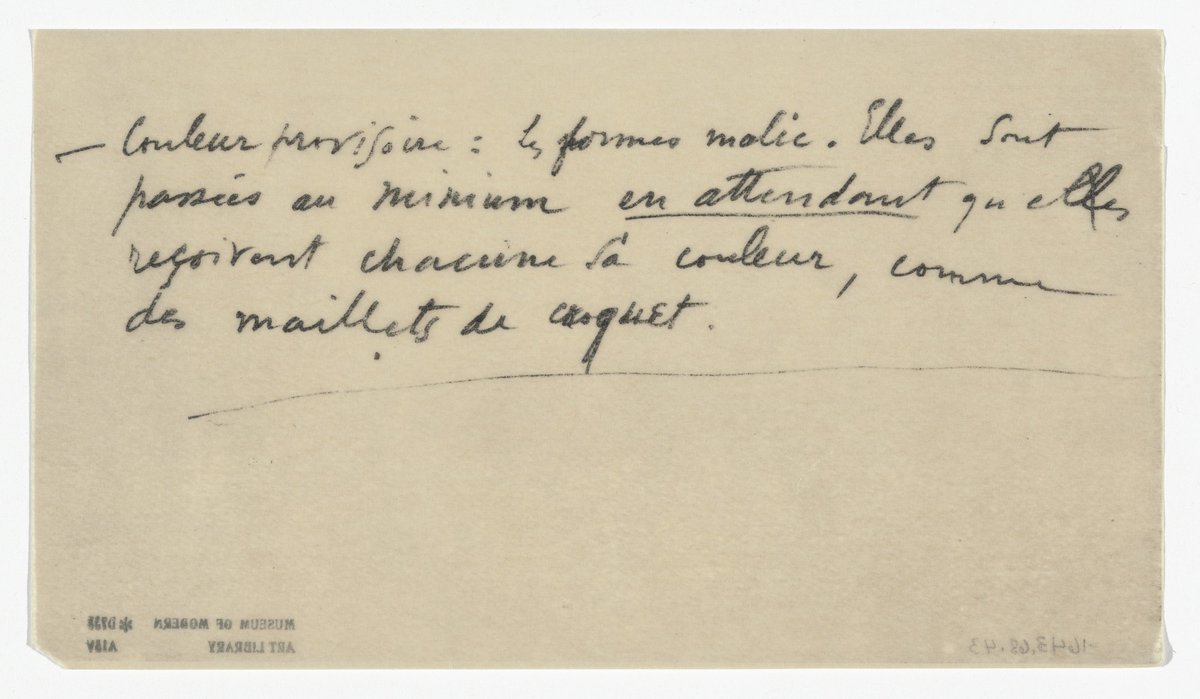 — Couleur provisoire : les formes malic. Elles sont
passées au minium en attendant qu'elles
reçoivent chacune sa couleur, comme
des maillets de croquet.
MUSEUM OF MODERN
ART LIBRARY
1643.68.43